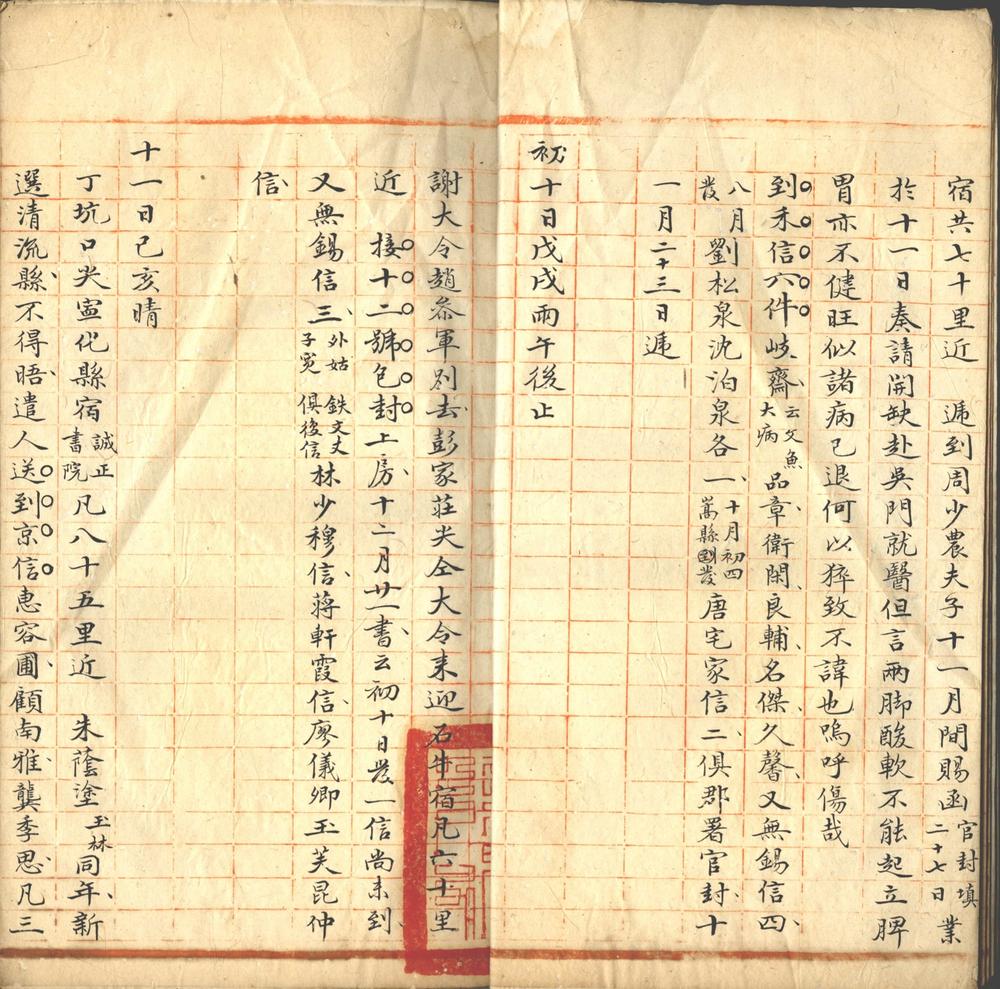 宿共七十里近　遞到周少農夫子十一月間賜函官封填二十七日業
於十一日奏請開缺赴吳門就醫但言兩脚酸軟不能起立脾
胃亦不健旺似諸病已退何以猝致不諱也嗚呼傷哉
到禾信六件岐齋云文魚大病品章衛閑良輔名傑久馨又無錫信四
八月發劉松泉沈泊泉各一十月初四嵩縣發唐宅家信二俱郡署官封十
一月二十三日遞
初十日戊戌雨午後止
謝大令趙叅軍別去彭家莊尖仝大令来迎石牛宿凡六十里
近　接十二號包封上房十二月廿一書云初十日發一信尚未到
又無錫信三外姑子寬鉄文丈俱後信林少穆信蔣軒霞信廖儀卿玉芙昆仲
信
十一日己亥晴
丁坑口尖寧化縣宿誠正書院凡八十五里近　朱蔭塗玉林同年新
選清流縣不得晤遣人送到京信惠容圃顧南雅龔季思凡三